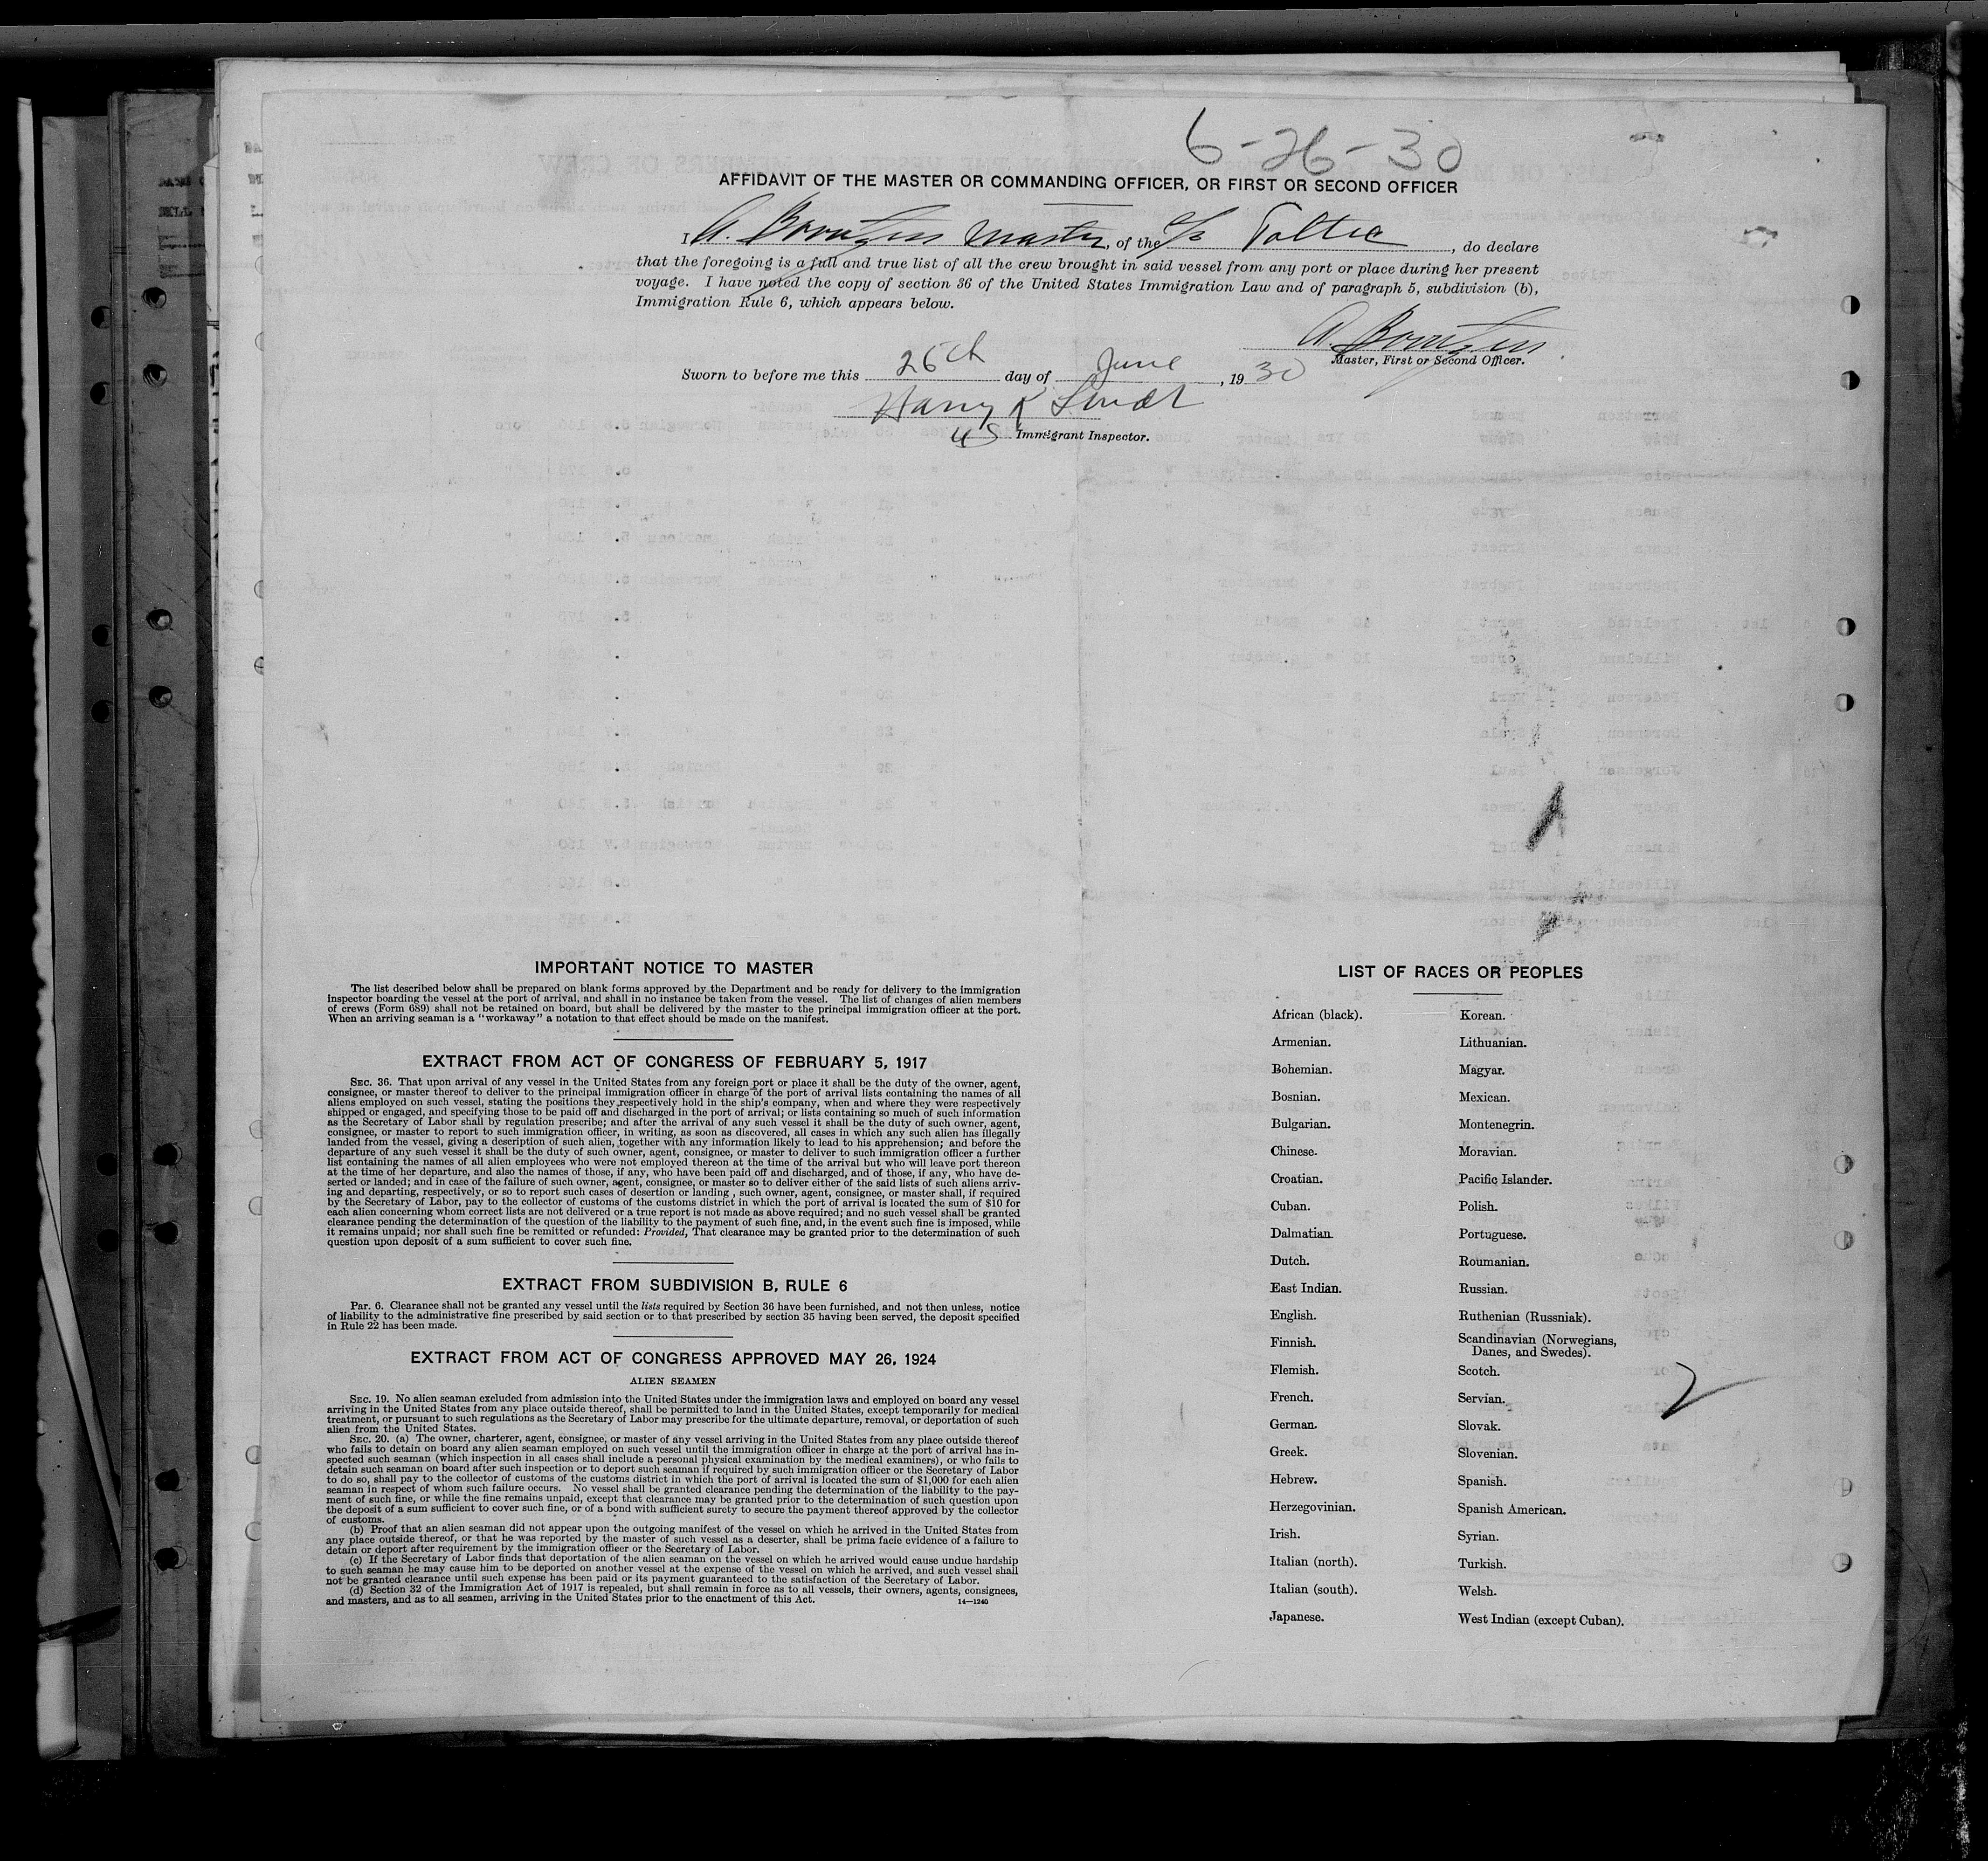 6-26-30
AFFIDAVIT OF THE MASTER OR COMMANDING OFFICER, OR FIRST OR SECOND OFFICER
I, A. Borretzen Master, of the S/S Toltec, do declare
that the foregoing is a full and true list of all the crew brought in said vessel from any port or place during her present
voyage. I have noted the copy of section 36 of the United States Immigration Law and of paragraph 5, subdivision (b),
Immigration Rule 6, which appears below.
A. Borretzen
Master, First or Second Officer.
Sworn to before me this 26th day of June, 1930
Harry K
US Immigrant Inspector.
IMPORTANT NOTICE TO MASTER
The list described below shall be prepared on blank forms approved by the Department and be ready for delivery to the immigration
inspector boarding the vessel at the port of arrival, and shall in no instance be taken from the vessel. The list of changes of alien members
of crews (Form 689) shall not be retained on board, but shall be delivered by the master to the principal immigration officer at the port.
When an arriving seaman is a "workaway" a notation to that effect should be made on the manifest.
EXTRACT FROM ACT OF CONGRESS OF FEBRUARY 5, 1917
SEC. 36. That upon arrival of any vessel in the United States from any foreign port or place it shall be the duty of the owner, agent,
consignee, or master thereof to deliver to the principal immigration officer in charge of the port of arrival lists containing the names of all
aliens employed on such vessel, stating the positions they respectively hold in the ship's company, when and where they were respectively
shipped or engaged, and specifying those to be paid off and discharged in the port of arrival; or lists containing so much of such information
as the Secretary of Labor shall by regulation prescribe; and after the arrival of any such vessel it shall be the duty of such owner, agent,
consignee, or master to report to such immigration officer, in writing, as soon as discovered, all cases in which any such alien has illegally
landed from the vessel, giving a description of such alien, together with any information likely to lead to his apprehension; and before the
departure of any such vessel it shall be the duty of such owner, agent, consignee, or master to deliver to such immigration officer a further
list containing the names of all alien employees who were not employed thereon at the time of the arrival but who will leave port thereon
at the time of her departure, and also the names of those, if any, who have been paid off and discharged, and of those, if any, who have de-
serted or landed; and in case of the failure of such owner, agent, consignee, or master so to deliver either of the said lists of such aliens arriv-
ing and departing, respectively, or so to report such cases of desertion or landing , such owner, agent, consignee, or master shall, if required
by the Secretary of Labor, pay to the collector of customs of the customs district in which the port of arrival is located the sum of $10 for
each alien concerning whom correct lists are not delivered or a true report is not made as above required; and no such vessel shall be granted
clearance pending the determination of the question of the liability to the payment of such fine, and, in the event such fine is imposed, while
it remains unpaid; nor shall such fine be remitted or refunded: Provided, That clearance may be granted prior to the determination of such
question upon deposit of a sum sufficient to cover such fine.
EXTRACT FROM SUBDIVISION B, RULE 6
Par. 6. Clearance shall not be granted any vessel until the lists required by Section 36 have been furnished, and not then unless, notice
of liability to the administrative fine prescribed by said section or to that prescribed by section 35 having been served, the deposit specified
in Rule 22 has been made.
EXTRACT FROM ACT OF CONGRESS APPROVED MAY 26, 1924
ALIEN SEAMEN
SEC. 19. No alien seaman excluded from admission into the United States under the immigration laws and employed on board any vessel
arriving in the United States from any place outside thereof, shall be permitted to land in the United States, except temporarily for medical
treatment, or pursuant to such regulations as the Secretary of Labor may prescribe for the ultimate departure, removal, or deportation of such
alien from the United States.
SEC. 20. (a) The owner, charterer, agent, consignee, or master of any vessel arriving in the United States from any place outside thereof
who fails to detain on board any alien seaman employed on such vessel until the immigration officer in charge at the port of arrival has in-
spected such seaman (which inspection in all cases shall include a personal physical examination by the medical examiners), or who fails to
detain such seaman on board after such inspection or to deport such seaman if required by such immigration officer or the Secretary of Labor
to do so, shall pay to the collector of customs of the customs district in which the port of arrival is located the sum of $1,000 for each alien
seaman in respect of whom such failure occurs. No vessel shall be granted clearance pending the determination of the liability to the pay-
ment of such fine, or while the fine remains unpaid, except that clearance may be granted prior to the determination of such question upon
the deposit of a sum sufficient to cover such fine, or of a bond with sufficient surety to secure the payment thereof approved by the collector
of customs.
(b) Proof that an alien seaman did not appear upon the outgoing manifest of the vessel on which he arrived in the United States from
any place outside thereof, or that he was reported by the master of such vessel as a deserter, shall be prima facie evidence of a failure to
detain or deport after requirement by the immigration officer or the Secretary of Labor.
(c) If the Secretary of Labor finds that deportation of the alien seaman on the vessel on which he arrived would cause undue hardship
to such seaman he may cause him to be deported on another vessel at the expense of the vessel on which he arrived, and such vessel shall
not be granted clearance until such expense has been paid or its payment guaranteed to the satisfaction of the Secretary of Labor.
(d) Section 32 of the Immigration Act of 1917 is repealed, but shall remain in force as to all vessels, their owners, agents, consignees,
and masters, and as to all seamen, arriving in the United States prior to the enactment of this Act.
14—1240
LIST OF RACES OR PEOPLES
African (black).
Armenian.
Bohemian.
Bosnian.
Bulgarian.
Chinese.
Croatian.
Cuban.
Dalmatian.
Dutch.
East Indian.
English.
Finnish.
Flemish.
French.
German.
Greek.
Hebrew.
Herzegovinian.
Irish.
Italian (north).
Italian (south).
Japanese.
Korean.
Lithuanian.
Magyar.
Mexican.
Montenegrin.
Moravian.
Pacific Islander.
Polish.
Portuguese.
Roumanian.
Russian.
Ruthenian (Russniak).
Scandinavian (Norwegians,
Danes, and Swedes).
Scotch.
Servian.
Slovak.
Slovenian.
Spanish.
Spanish American.
Syrian.
Turkish.
Welsh.
West Indian (except Cuban).
2